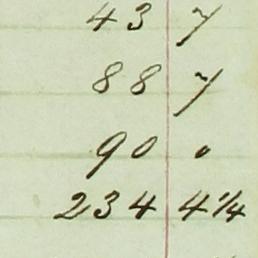 43 7
88 7
90 "
234 4 1/4